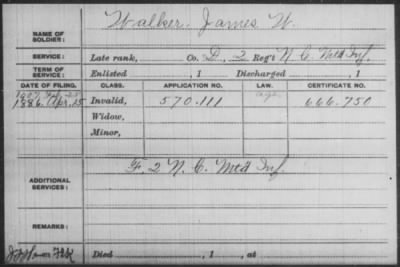 NAME OF SOLDIER: Walker, James W.
SERVICE: Late rank, Co. D, 2 Reg't N. C. Mtd Inf.
TERM OF SERVICE: Enlisted , 1 Discharged , 1
DATE OF FILING. CLASS. APPLICATION NO. LAW. CERTIFICATE NO.
1886, Apr. 15 Invalid, 570.111 666.750
Widow,
Minor,
ADDITIONAL SERVICES: F. 2 N. C. Mtd Inf
REMARKS:
Died , 1 , at